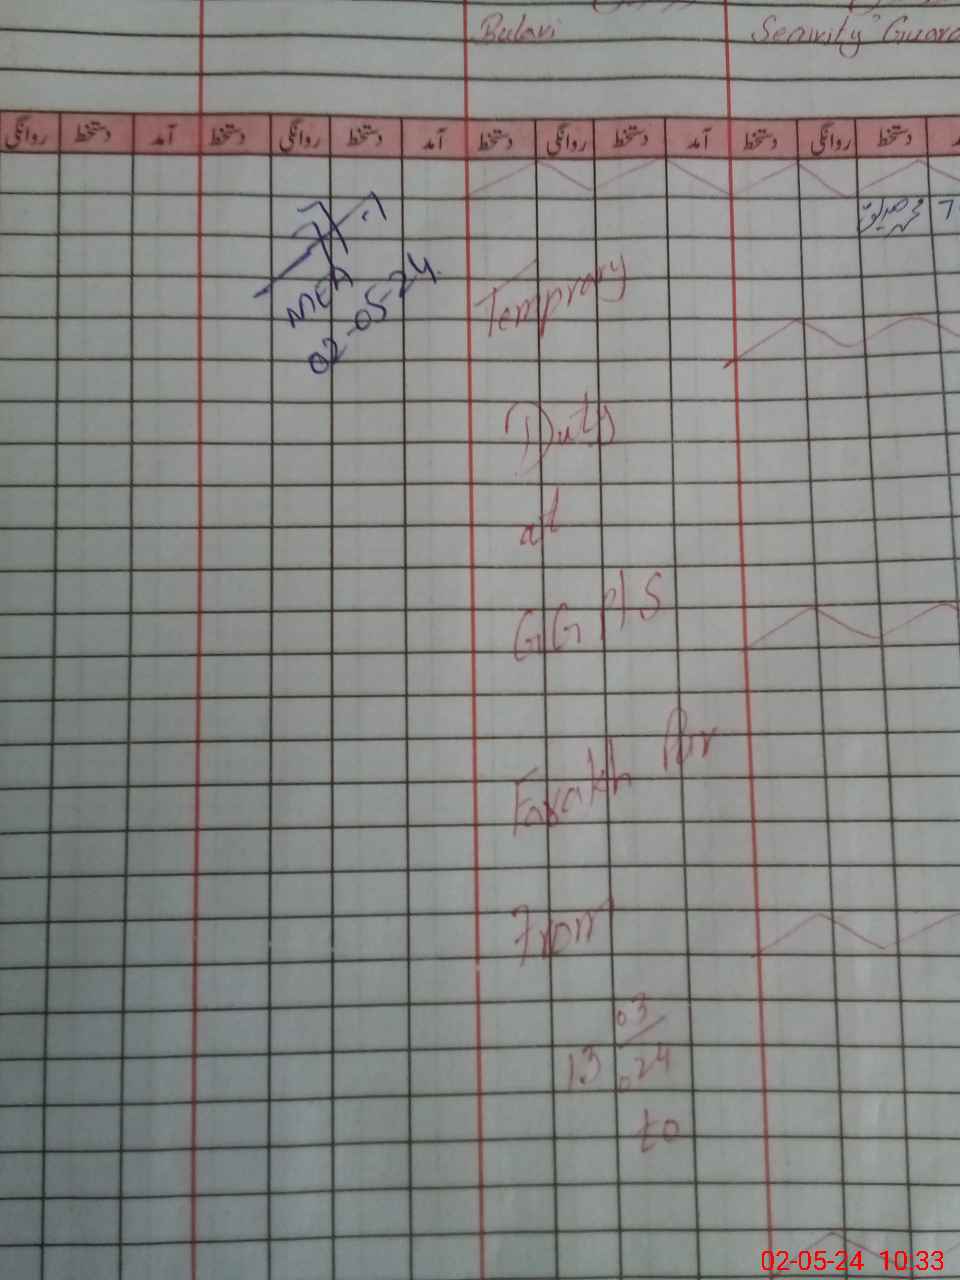 Balavi
Security Guard
روانگی دستخط آمد دستخط روانگی دستخط آمد دستخط روانگی دستخط آمد دستخط روانگی دستخط
MEA
02-05-24
Temprary
Duty
at
GG P/S
Farakh Pur
From
13 03/024
to
02-05-24 10:33